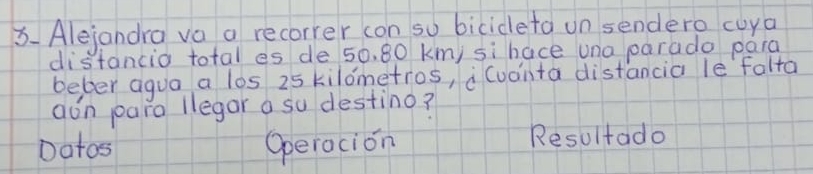 3- Alejandra va a recorrer con su bicicleta un sendero cuya
distancia total es de 50.80 km, si hace una parada para
beber agua a los 25 kilómetros, ¿Cuánta distancia le falta
aún para llegar a su destino?
Datos Operación Resultado